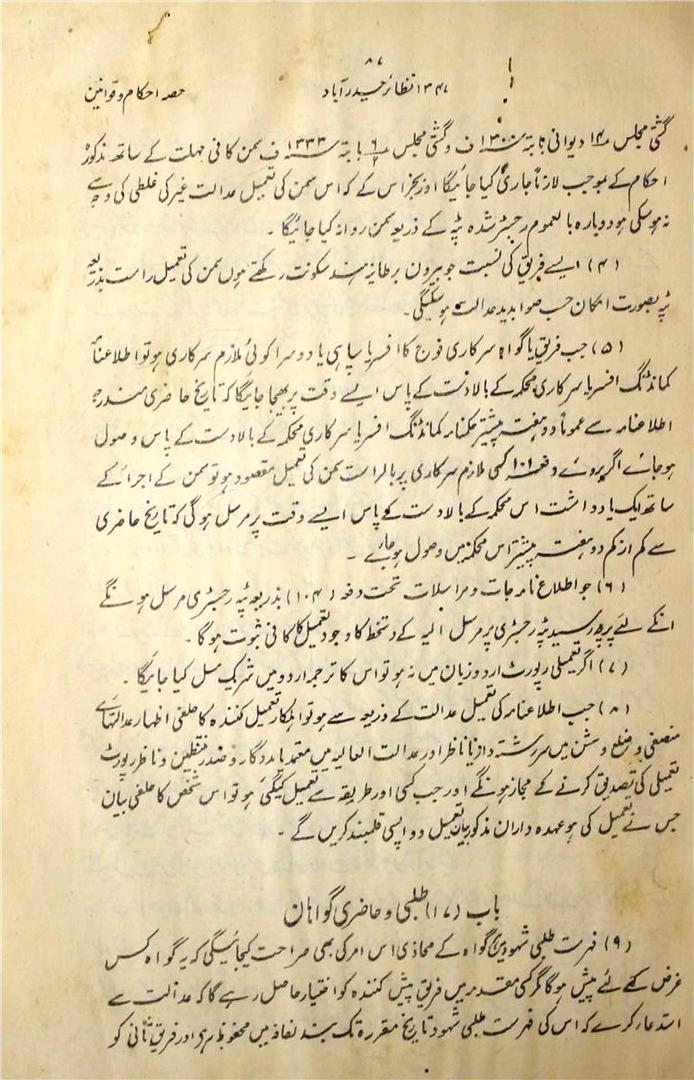 ۸۷
۱۳۴۷ نظائر حیدرآباد
حصہ احکام و قوانین
گشتی مجلس ۱۴ دیوانی بابتہ ۱۳۰۰ ف و گشتی مجلس ۶ بابتہ ۱۳۳۳ ف سمن کافی مہلت کے ساتھ مذکورہ
احکام کے بموجب لازماً جاری کیا جائیگا اور بجز اس کے کہ اس سمن کی تعمیل عدالت غیر کی غلطی کی وجہ سے
نہ ہوسکی ہو دوبارہ بالعموم رجسٹر شدہ ٹپہ کے ذریعہ سمن روانہ کیا جائیگا ۔
(۴) ایسے فریق کی نسبت جو بیرون برطانیہ ہند سکونت رکھتے ہوں سمن کی تعمیل راست بذریعہ
ٹپہ بصورت امکان حسب صوابدید عدالت ہوسکیگی ۔
(۵) جب فریق یا گواہ سرکاری فوج کا افسر یا سپاہی یا دوسرا کوئی ملازم سرکاری ہو تو اطلاعنامہ
کمانڈنگ افسر یا سرکاری محکمہ کے بالادست کے پاس ایسے وقت پر بھیجا جائیگا کہ تاریخ حاضری مندرجہ
اطلاعنامہ سے عموماً دو ہفتہ پیشتر حکمنامہ کمانڈنگ افسر یا سرکاری محکمہ کے بالادست کے پاس وصول
ہوجائے اگر بروئے دفعہ ۱۰۱ کسی ملازم سرکاری پر بالراست سمن کی تعمیل مقصود ہو تو سمن کے اجرا کے
ساتھ ایک یادداشت اس محکمہ کے بالادست کے پاس ایسے وقت پر مرسل ہوگی کہ تاریخ حاضری
سے کم از کم دو ہفتہ پیشتر اس محکمہ میں وصول ہوجائے ۔
(۶) جو اطلاع نامہ جات و مراسلات تحت دفعہ (۱۰۴) بذریعہ ٹپہ رجسٹری مرسل ہونگے
انکے لئے پر رسید ٹپہ رجسٹری پر مرسل الیہ کے دستخط کا وجود تعمیل کا کافی ثبوت ہوگا ۔
(۷) اگر تعمیلی رپورٹ اردو زبان میں نہ ہو تو اس کا ترجمہ اردو میں شریک مسل کیا جائیگا ۔
(۸) جب اطلاعنامہ کی تعمیل عدالت کے ذریعہ سے ہو تو اہلکار تعمیل کنندہ کا حلفی اظہار عدالتہائے
منصفی و ضلع و سشن میں سررشتہ دار یا ناظر اور عدالت العالیہ میں معتمد یا مددگار و صدر منتظمین و ناظر رپورٹ
تعمیلی کی تصدیق کرنے کے مجاز ہونگے اور جب کسی اور طریقہ سے تعمیل کیگئی ہو تو اس شخص کا حلفی بیان
جس نے تعمیل کی ہو عہدہ داران مذکور بیان تعمیل و واپسی قلمبند کریں گے ۔
باب (۱۷) طلبی و حاضری گواہان
(۹) فہرست طلبی شہود میں گواہ کے محاذی اس امر کی بھی صراحت کیجائیگی کہ یہ گواہ کس
غرض کے لئے پیش ہوگا مگر کسی مقدمہ میں فریق پیش کنندہ کو اختیار حاصل رہے گا کہ عدالت سے
استدعا کرے کہ اس کی فہرست طلبی شہود تاریخ مقررہ تک بند لفافہ میں محفوظ رہے اور فریق ثانی کو